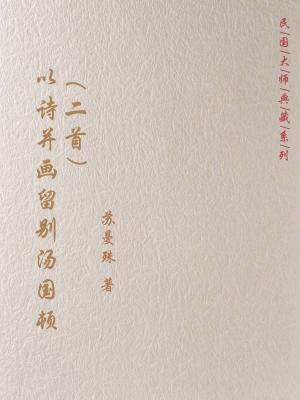 民|国|大|师|典|藏|系|列
以诗并画留别汤国顿
(二首)
苏曼殊 著